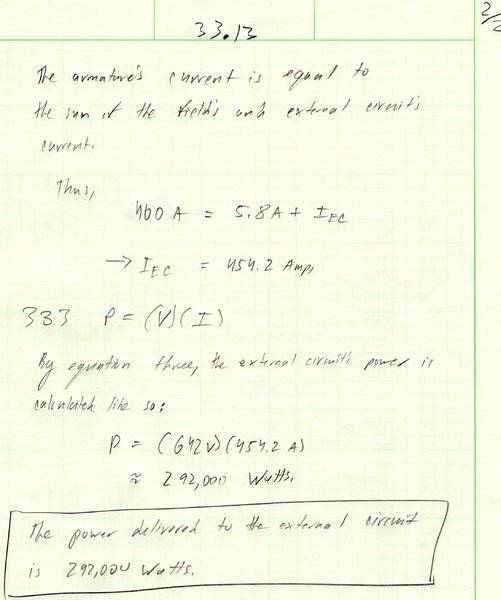 33.13
2/2
The armature's current is equal to
the sum of the field's and external circuit's
current.
Thus,
460 A = 5.8A + I_EC
→ I_EC = 454.2 Amps
333 P = (V)(I)
By equation three, the external circuit's power is
calculated like so:
P = (642V)(454.2 A)
≈ 292,000 Watts.
The power delivered to the external circuit
is 292,000 Watts.